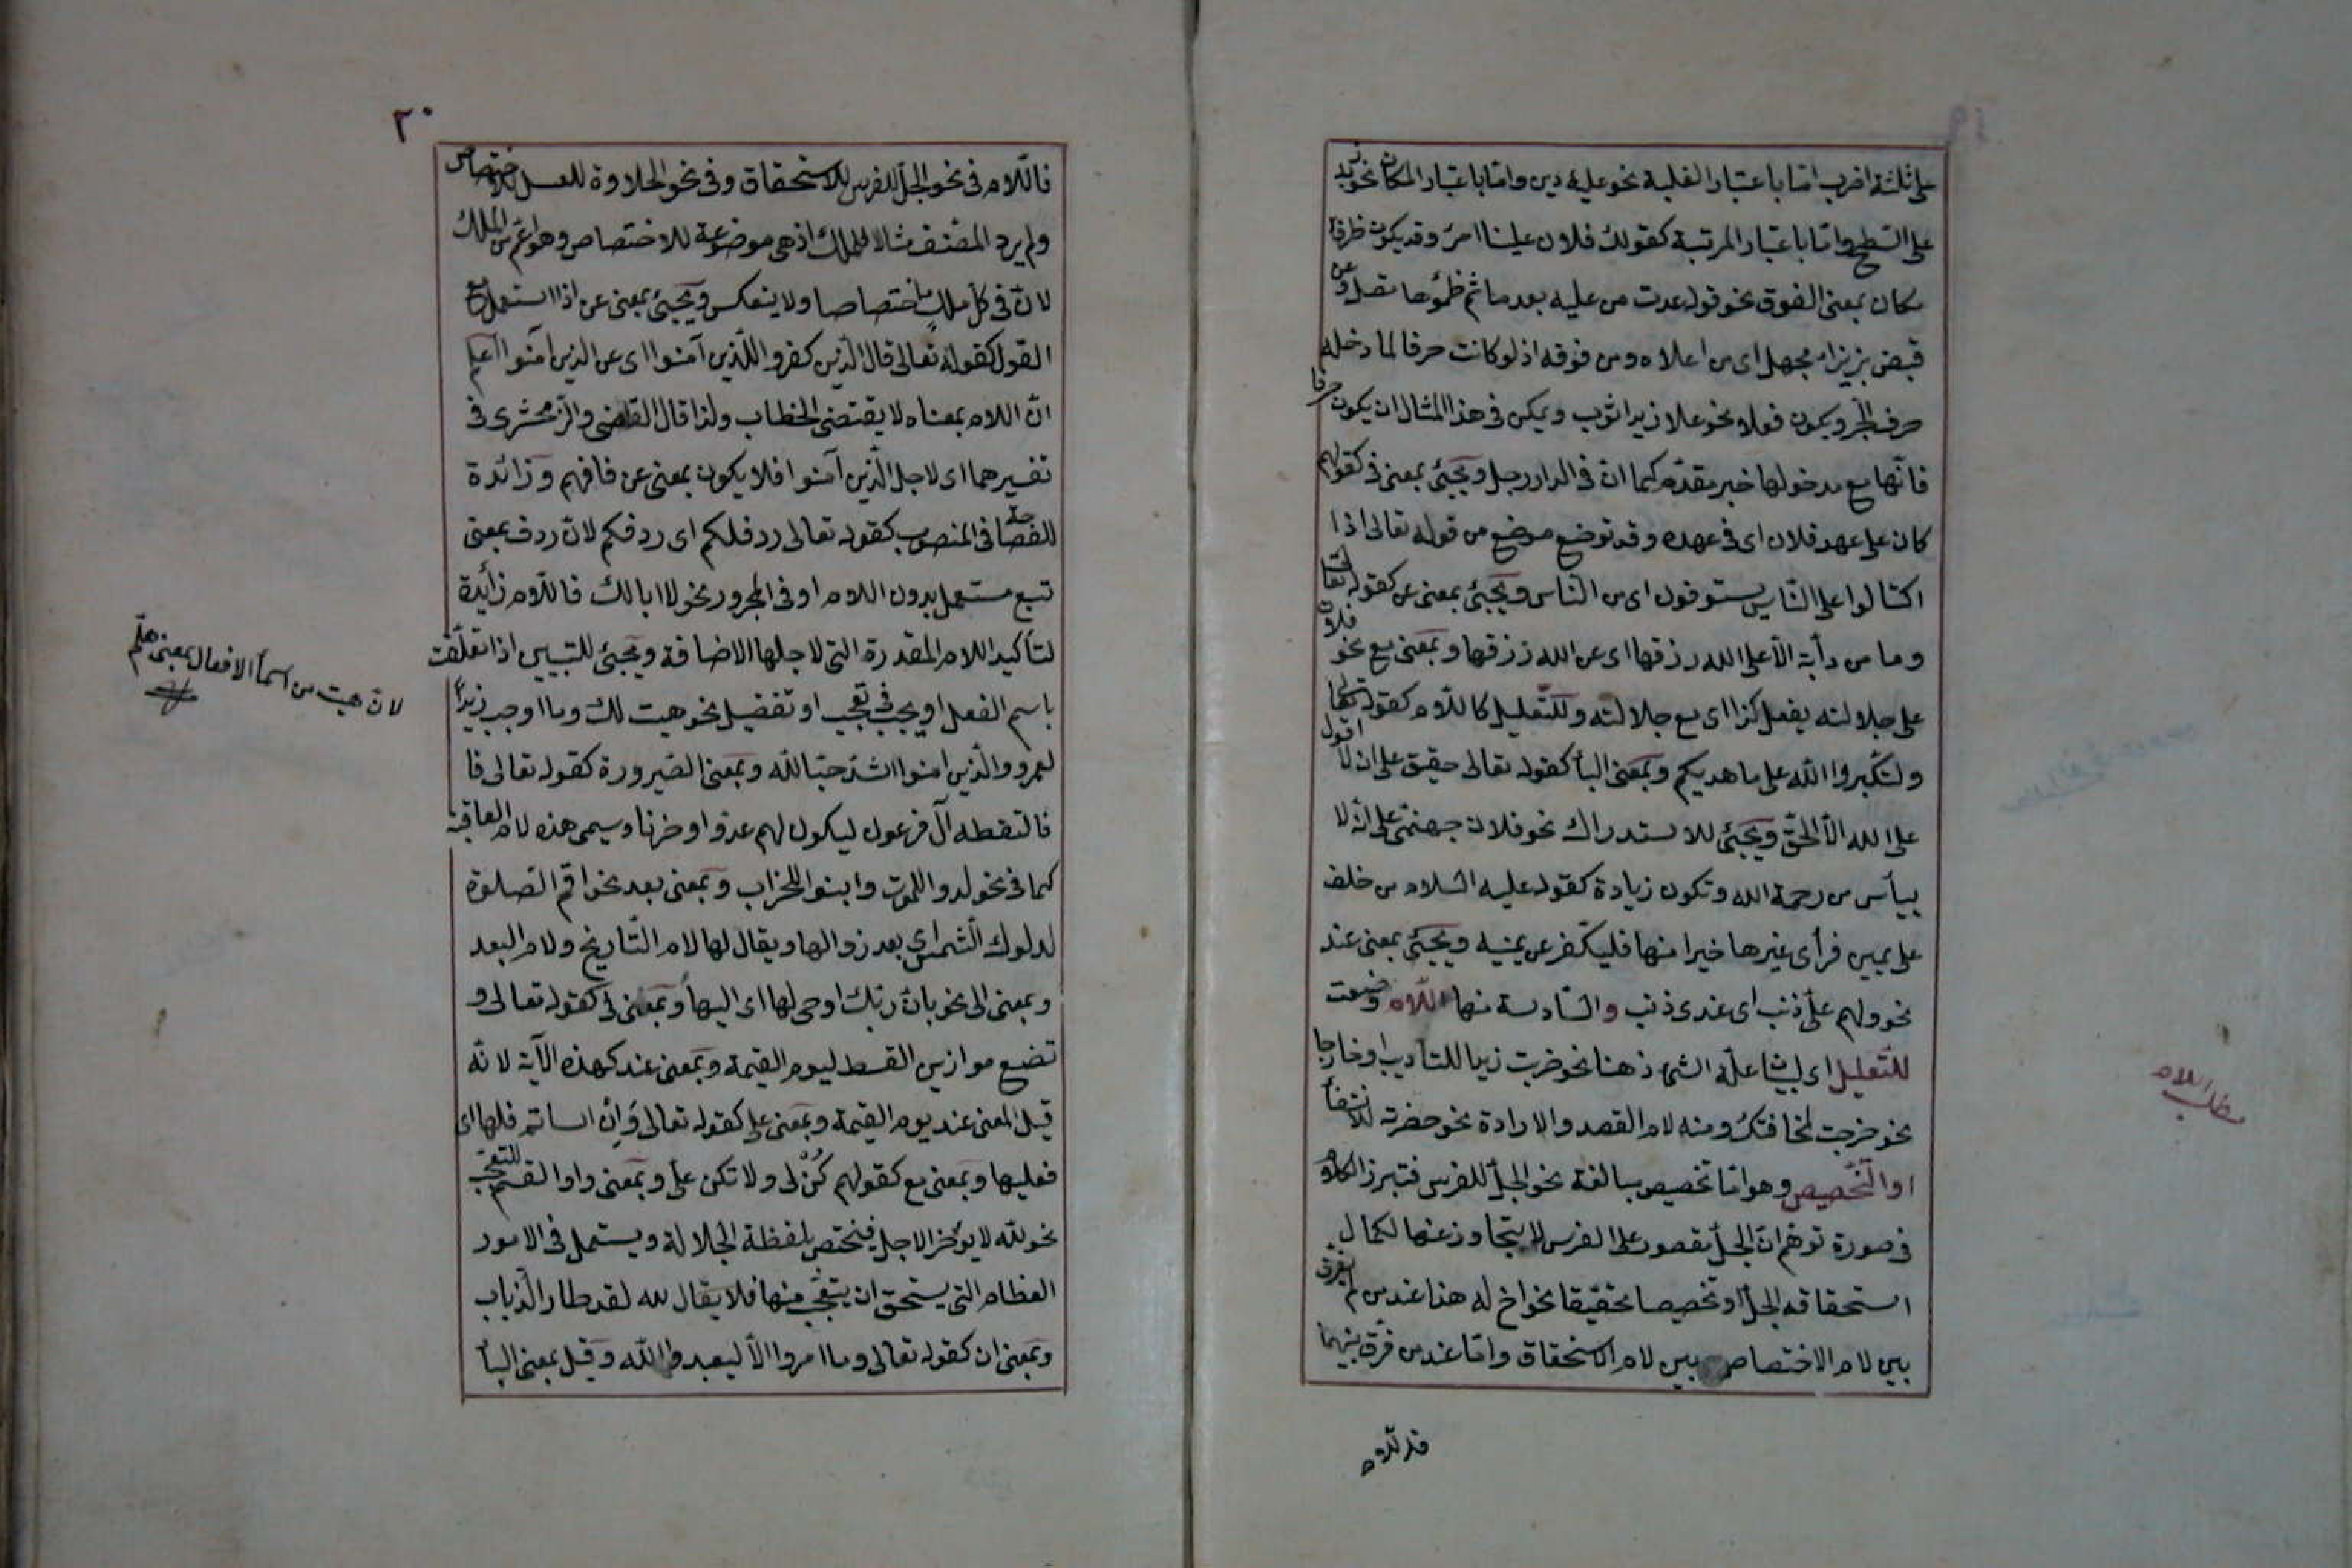 على ثلثة اضرب اما باعتبار الغلبة نحو عليه دين واما باعتبار المكان نحو زيد
على السّطح واما باعتبار المرتبة كقولك فلان علينا امرٌ وقد يكون ظرف
مكان بمعنى الفوق نحو قوله عدت من عليه بعد ما تم ظمؤها تصل وعن
قيض بزيزاء مجهل اى من اعلاه ومن فوقه اذ لو كانت حرفا لما دخله
حرف الجّر ويكون فعلا نحو علا زيدا ثوب ويمكن فى هذا المثال ان يكون حرفا
فانّها مع مدخولها خبر مقدّم كما ان فى الدار رجل ويجيئ بمعنى فى كقولهم
كان على عهد فلان اى فى عهده وقد توضع موضع من قوله تعالى اذا
اكتالوا على النّاس يستوفون اى من النّاس ويجيئ بمعنى عن كقوله تعا
وما من دأبة الّا على الله رزقها اى عن الله رزقها وبمعنى مع نحو فلان
على جلالته يفعل كذا اى مع جلالته وللتّعليل كاللّام كقوله تعا
ولتكّبروا الله على ما هديكم وبمعنى البأ كقوله تعالى حقيق على ان لا اقول
على الله الّا الحّق ويجيئ للاستدراك نحو فلان جهنمّى على انّه لا
ييأس من رحمة الله وتكون زيادة كقوله عليه السّلام من خلف
على يمين فرأى غيرها خيرا منها فليكّفر عن يمينه ويجيئ بمعنى عند
نحو ولهم علّى ذنب اى عندى ذنب والسّادسة منها اللّام وضعت
للتّعليل اى لبيان علّة الشئ ذهنا نحو ضربت زيدا للتأديب او خارجا
نحو خرجت لمخافتك ومنه لام القصد والارادة نحو حضرته للانتفأ
او التّخصيص وهو امّا تخصيص مبالغة نحو الجلّ للفرس فتبرز الكلام
فى صورة توهّم انّ الجلّ مقصور على الفرس لا يتجاوز عنها لكمال
استحقاقه الجلّ او تخصيصا محقّقا نحو اخ له هذا عند من لم يفرق
بين لام الاختصاص بين لام الاستحقاق وامّا عند من فرّق بينهما
فاللّام
مطلب اللام
٢٠
فاللّام فى نحو الجلّ للفرس للاستحقاق وفى نحو الحلاوة للعسل للاختصاص
ولم يرد المصّنف مثالا للملك اذ هى موضوعة للاختصاص وهو اعّم من الملك
لانّ فى كلّ ملك اختصاصا ولا ينعكس ويجيئ بمعنى عن اذا استعمل مع
القول كقوله تعالى قال الّذين كفروا للّذين آمنوا اى عن الذين امنوا اعلم
انّ اللام بمعناه لا يقتضى الخطاب ولذا قال القاضى والزّمخشرى فى
تفسيرهما اى لاجل الّذين آمنوا فلا يكون بمعنى عن فافهم وزائدة
للفصاحة فى المنصوب كقوله تعالى ردف لكم اى ردفكم لانّ ردف بمعنى
تبع مستعمل بدون اللام او فى المجرور نحو لا ابالك فاللّام زأيدة
لتأكيد اللام المقدرة التى لاجلها الاضافة ويجيئ للتبيين اذا تعلّقت
باسم الفعل او بحب فى تعجب او تفضيل نحو هيت لك وما اوجب زيداً
لعمرو والّذين امنوا اشدّ حبّا لله وبمعنى الصّيرورة كقوله تعالى فا
فالتقطه آل فرعون ليكون لهم عدوّا وحزنا ويسمى هذه لام العاقبة
كما فى نحو لدوا للموت وابنوا للخراب وبمعنى بعد نحو اقم الصّلوة
لدلوك الشّمس اى بعد زوالها ويقال لها لام التّاريخ ولام البعد
وبمعنى الى نحو بانّ ربّك اوحى لها اى اليها وبمعنى فى كقوله تعالى و
تضع موازين القسط ليوم القيمة وبمعنى عند كهذه الآية لانّه
قيل المعنى عند يوم القيمة وبمعنى على كقوله تعالى وَاِن اسأتم فلها اى
فعليها وبمعنى مع كقولهم كُنْ لى ولا تكن علىّ وبمعنى واو القسم للتعجّب
نحو للّه لا يؤخّر الاجل فيختص بلفظة الجلالة ويستعمل فى الامور
العظام التى يستحق ان يتعّجب منها فلا يقال لله لقد طار الذّباب
وبمعنى ان كقوله تعالى وما امروا الّا ليعبدوا الله وقيل بمعنى البأ
لانّ هيت من اسمأ الافعال بمعنى هلّم